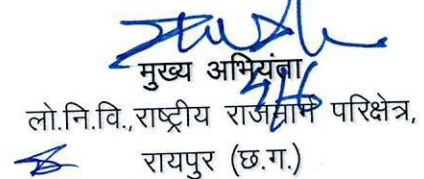 मुख्य अभियंता
लो.नि.वि.,राष्ट्रीय राजमार्ग परिक्षेत्र,
रायपुर (छ.ग.)